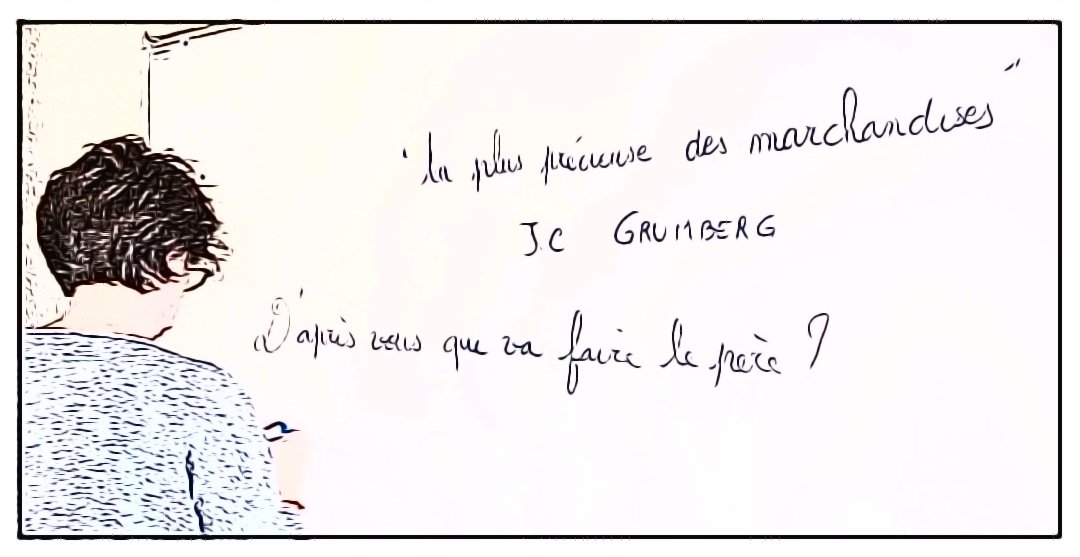 "la plus précieuse des marchandises"
J.C GRUMBERG
D'après vous que va faire le père ?